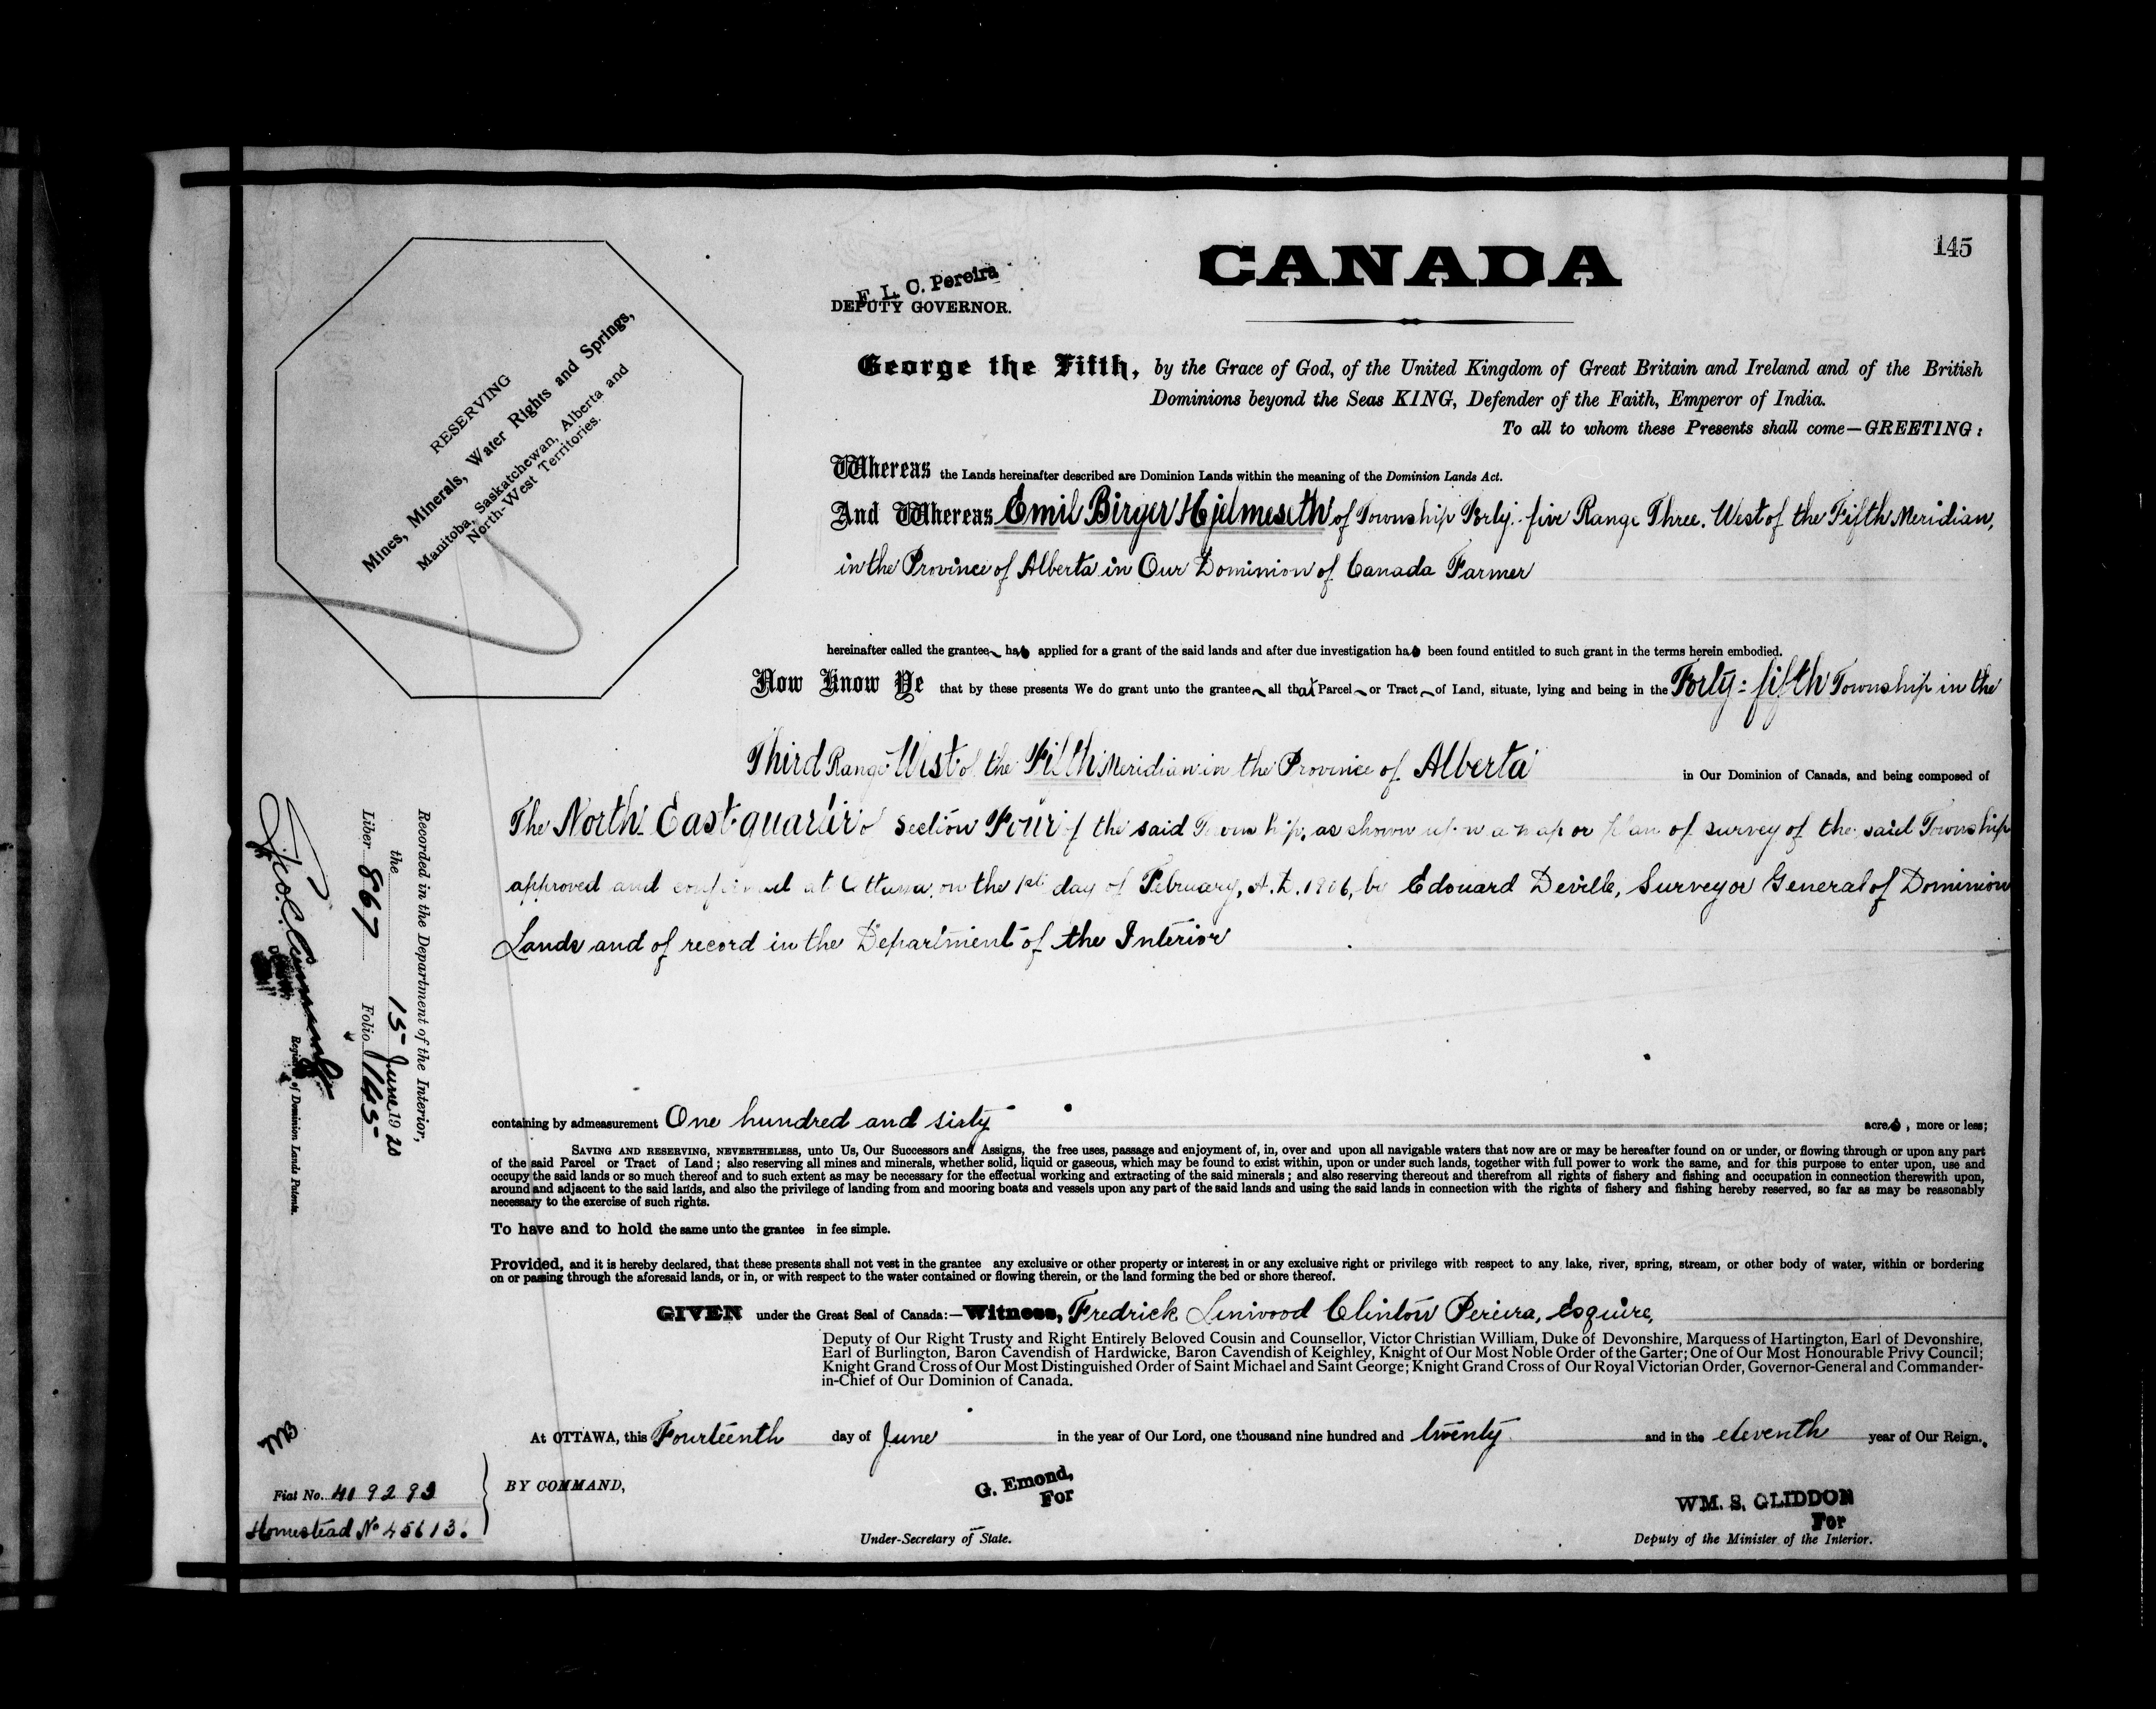 145
CANADA
F. L. C. Pereira
DEPUTY GOVERNOR.
RESERVING
Mines, Minerals, Water Rights and Springs,
Manitoba, Saskatchewan, Alberta and
North-West Territories.
George the Fifth, by the Grace of God, of the United Kingdom of Great Britain and Ireland and of the British
Dominions beyond the Seas KING, Defender of the Faith, Emperor of India.
To all to whom these Presents shall come—GREETING:
Whereas the Lands hereinafter described are Dominion Lands within the meaning of the Dominion Lands Act.
And Whereas Emil Birger Hjelmeseth of Township Forty-five Range Three. West of the Fifth Meridian,
in the Province of Alberta in Our Dominion of Canada Farmer
hereinafter called the grantee has applied for a grant of the said lands and after due investigation has been found entitled to such grant in the terms herein embodied.
Now Know Ye that by these presents We do grant unto the grantee all that Parcel or Tract of Land, situate, lying and being in the Forty-fifth Township in the
Third Range West of the Fifth Meridian in the Province of Alberta in Our Dominion of Canada, and being composed of
The North East quarter of Section Four of the said Township, as shown upon a map or plan of survey of the said Township
approved and confirmed at Ottawa, on the 1st day of February, A.D. 1906, by Edouard Deville, Surveyor General of Dominion
Lands and of record in the Department of the Interior
containing by admeasurement One hundred and sixty acres, more or less;
SAVING AND RESERVING, NEVERTHELESS, unto Us, Our Successors and Assigns, the free uses, passage and enjoyment of, in, over and upon all navigable waters that now are or may be hereafter found on or under, or flowing through or upon any part
of the said Parcel or Tract of Land; also reserving all mines and minerals, whether solid, liquid or gaseous, which may be found to exist within, upon or under such lands, together with full power to work the same, and for this purpose to enter upon, use and
occupy the said lands or so much thereof and to such extent as may be necessary for the effectual working and extracting of the said minerals; and also reserving thereout and therefrom all rights of fishery and fishing and occupation in connection therewith upon,
around and adjacent to the said lands, and also the privilege of landing from and mooring boats and vessels upon any part of the said lands and using the said lands in connection with the rights of fishery and fishing hereby reserved, so far as may be reasonably
necessary to the exercise of such rights.
To have and to hold the same unto the grantee in fee simple.
Provided, and it is hereby declared, that these presents shall not vest in the grantee any exclusive or other property or interest in or any exclusive right or privilege with respect to any lake, river, spring, stream, or other body of water, within or bordering
on or passing through the aforesaid lands, or in, or with respect to the water contained or flowing therein, or the land forming the bed or shore thereof.
GIVEN under the Great Seal of Canada:—Witness, Fredrick Linwood Clinton Pereira, Esquire,
Deputy of Our Right Trusty and Right Entirely Beloved Cousin and Counsellor, Victor Christian William, Duke of Devonshire, Marquess of Hartington, Earl of Devonshire,
Earl of Burlington, Baron Cavendish of Hardwicke, Baron Cavendish of Keighley, Knight of Our Most Noble Order of the Garter; One of Our Most Honourable Privy Council;
Knight Grand Cross of Our Most Distinguished Order of Saint Michael and Saint George; Knight Grand Cross of Our Royal Victorian Order, Governor-General and Commander-
in-Chief of Our Dominion of Canada.
At OTTAWA, this Fourteenth day of June in the year of Our Lord, one thousand nine hundred and twenty and in the eleventh year of Our Reign.
BY COMMAND,
G. Emond,
For
Under-Secretary of State.
WM. S. GLIDDON
For
Deputy of the Minister of the Interior.
Recorded in the Department of the Interior,
the 15 June 1920
Liber 867 Folio 145
of Dominion Lands Patents.
Fiat No. 419293
Homestead No